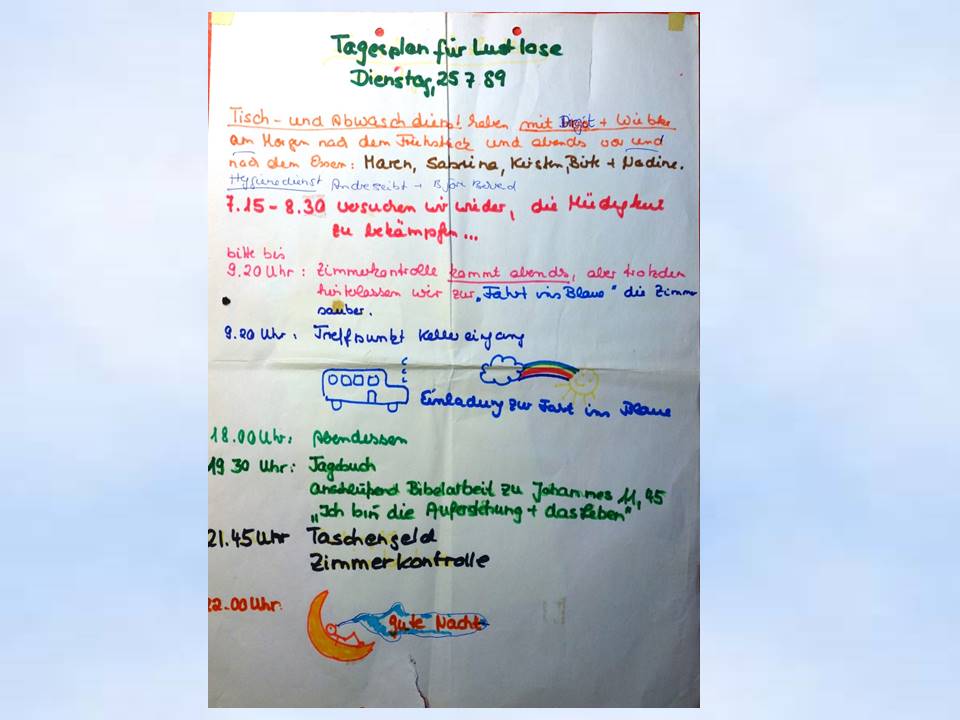 Tagesplan für Lustlose
Dienstag, 25 7 89
Tisch- und Abwaschdienst haben mit Birgit + Wiebke
am Morgen nach dem Frühstück und abends vor und
nach dem Essen: Maren, Sabrina, Kirsten, Birk + Nadine.
Hygienedienst Andre Seibt + Björn
7.15 - 8.30 versuchen wir wieder, die Müdigkeit
zu bekämpfen...
bitte bis
9.20 Uhr: Zimmerkontrolle kommt abends, aber trotzdem
hinterlassen wir zur "Fahrt ins Blaue" die Zimmer
sauber.
9.20 Uhr: Treffpunkt Kellereingang
Einladung zur Fahrt ins Blaue
18.00 Uhr: Abendessen
19 30 Uhr: Tagebuch
anschließend Bibelarbeit zu Johannes 11, 45
"Ich bin die Auferstehung + das Leben"
21.45 Uhr Taschengeld
Zimmerkontrolle
22.00 Uhr:
gute Nacht